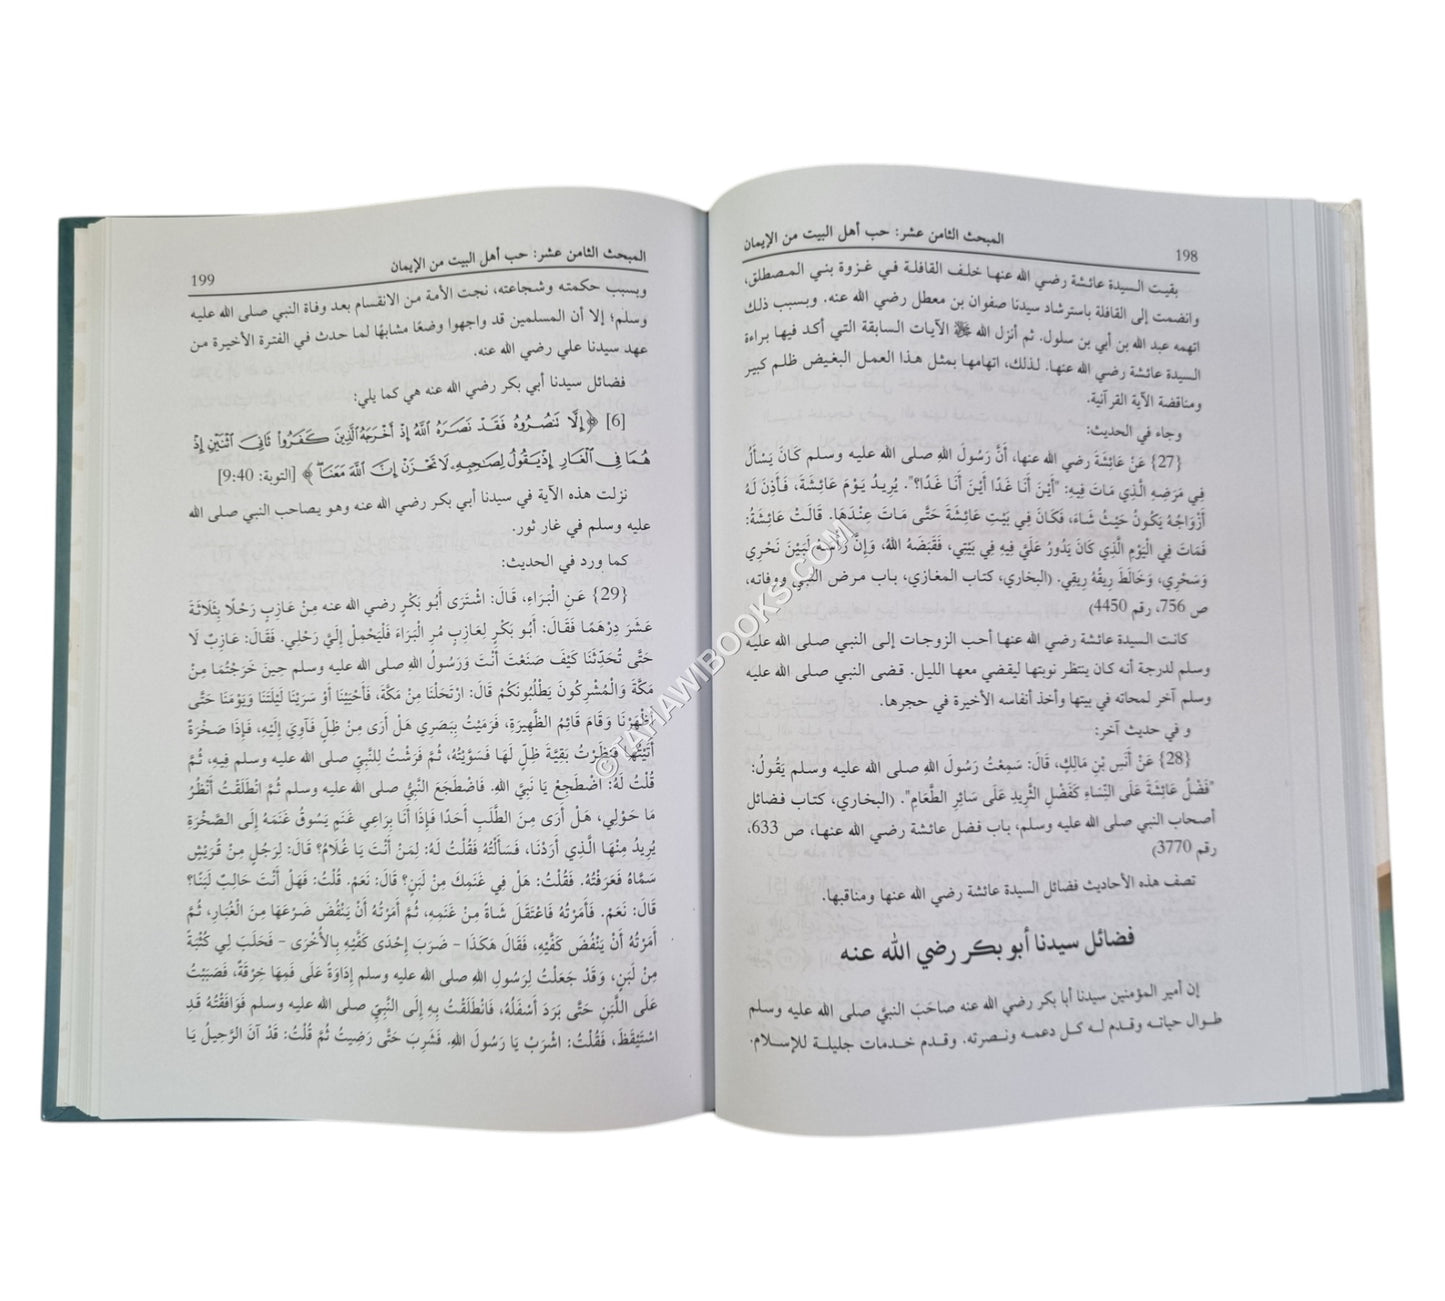 198
المبحث الثامن عشر: حب أهل البيت من الإيمان
بقيت السيدة عائشة رضي الله عنها خلف القافلة في غزوة بني المصطلق،
وانضمت إلى القافلة باسترشاد سيدنا صفوان بن معطل رضي الله عنه. وبسبب ذلك
اتهمه عبد الله بن أبي بن سلول. ثم أنزل الله ﷻ الآيات السابقة التي أكد فيها براءة
السيدة عائشة رضي الله عنها. لذلك، اتهامها بمثل هذا العمل البغيض ظلم كبير
ومناقضة الآية القرآنية.
وجاء في الحديث:
{27} عَنْ عَائِشَةَ رضي الله عنها، أَنَّ رَسُولَ اللهِ صلى الله عليه وسلم كَانَ يَسْأَلُ
فِي مَرَضِهِ الَّذِي مَاتَ فِيهِ: "أَيْنَ أَنَا غَدًا أَيْنَ أَنَا غَدًا؟". يُرِيدُ يَوْمَ عَائِشَةَ، فَأَذِنَ لَهُ
أَزْوَاجُهُ يَكُونُ حَيْثُ شَاءَ، فَكَانَ فِي بَيْتِ عَائِشَةَ حَتَّى مَاتَ عِنْدَهَا. قَالَتْ عَائِشَةُ:
فَمَاتَ فِي الْيَوْمِ الَّذِي كَانَ يَدُورُ عَلَيَّ فِيهِ فِي بَيْتِي، فَقَبَضَهُ اللهُ، وَإِنَّ رَأْسَهُ لَبَيْنَ نَحْرِي
وَسَحْرِي، وَخَالَطَ رِيقُهُ رِيقِي. (البخاري، كتاب المغازي، باب مرض النبي ووفاته،
ص 756، رقم 4450)
كانت السيدة عائشة رضي الله عنها أحب الزوجات إلى النبي صلى الله عليه
وسلم لدرجة أنه كان ينتظر نوبتها ليقضي معها الليل. قضى النبي صلى الله عليه
وسلم آخر لمحاته في بيتها وأخذ أنفاسه الأخيرة في حجرها.
و في حديث آخر:
{28} عَنْ أَنَسِ بْنِ مَالِكٍ، قَالَ: سَمِعْتُ رَسُولَ اللهِ صلى الله عليه وسلم يَقُولُ:
"فَضْلُ عَائِشَةَ عَلَى النِّسَاءِ كَفَضْلِ الثَّرِيدِ عَلَى سَائِرِ الطَّعَامِ". (البخاري، كتاب فضائل
أصحاب النبي صلى الله عليه وسلم، باب فضل عائشة رضي الله عنها، ص 633،
رقم 3770)
تصف هذه الأحاديث فضائل السيدة عائشة رضي الله عنها ومناقبها.
فضائل سيدنا أبو بكر رضي الله عنه
إن أمير المؤمنين سيدنا أبا بكر رضي الله عنه صاحَبَ النبيَّ صلى الله عليه وسلم
طوال حياته وقدم له كل دعمه ونصرته. وقدم خدمات جليلة للإسلام.
المبحث الثامن عشر: حب أهل البيت من الإيمان
199
وبسبب حكمته وشجاعته، نجت الأمة من الانقسام بعد وفاة النبي صلى الله عليه
وسلم؛ إلا أن المسلمين قد واجهوا وضعًا مشابهًا لما حدث في الفترة الأخيرة من
عهد سيدنا علي رضي الله عنه.
فضائل سيدنا أبي بكر رضي الله عنه هي كما يلي:
[6] ﴿إِلَّا تَنْصُرُوهُ فَقَدْ نَصَرَهُ اللَّهُ إِذْ أَخْرَجَهُ الَّذِينَ كَفَرُوا ثَانِيَ اثْنَيْنِ إِذْ
هُمَا فِي الْغَارِ إِذْ يَقُولُ لِصَاحِبِهِ لَا تَحْزَنْ إِنَّ اللَّهَ مَعَنَا﴾ [التوبة: 9:40]
نزلت هذه الآية في سيدنا أبي بكر رضي الله عنه وهو يصاحب النبي صلى الله
عليه وسلم في غار ثور.
كما ورد في الحديث:
{29} عَنِ الْبَرَاءِ، قَالَ: اشْتَرَى أَبُو بَكْرٍ رضي الله عنه مِنْ عَازِبٍ رَحْلًا بِثَلَاثَةَ
عَشَرَ دِرْهَمًا فَقَالَ: أَبُو بَكْرٍ لِعَازِبٍ مُرِ الْبَرَاءَ فَلْيَحْمِلْ إِلَيَّ رَحْلِي. فَقَالَ: عَازِبٌ لَا
حَتَّى تُحَدِّثَنَا كَيْفَ صَنَعْتَ أَنْتَ وَرَسُولُ اللهِ صلى الله عليه وسلم حِينَ خَرَجْتُمَا مِنْ
مَكَّةَ وَالْمُشْرِكُونَ يَطْلُبُونَكُمْ قَالَ: ارْتَحَلْنَا مِنْ مَكَّةَ، فَأَحْيَيْنَا أَوْ سَرَيْنَا لَيْلَتَنَا وَيَوْمَنَا حَتَّى
أَظْهَرْنَا وَقَامَ قَائِمُ الظَّهِيرَةِ، فَرَمَيْتُ بِبَصَرِي هَلْ أَرَى مِنْ ظِلٍّ فَآوِيَ إِلَيْهِ، فَإِذَا صَخْرَةٌ
أَتَيْتُهَا فَنَظَرْتُ بَقِيَّةَ ظِلٍّ لَهَا فَسَوَّيْتُهُ، ثُمَّ فَرَشْتُ لِلنَّبِيِّ صلى الله عليه وسلم فِيهِ، ثُمَّ
قُلْتُ لَهُ: اضْطَجِعْ يَا نَبِيَّ اللهِ. فَاضْطَجَعَ النَّبِيُّ صلى الله عليه وسلم ثُمَّ انْطَلَقْتُ أَنْظُرُ
مَا حَوْلِي، هَلْ أَرَى مِنَ الطَّلَبِ أَحَدًا فَإِذَا أَنَا بِرَاعِي غَنَمٍ يَسُوقُ غَنَمَهُ إِلَى الصَّخْرَةِ
يُرِيدُ مِنْهَا الَّذِي أَرَدْنَا، فَسَأَلْتُهُ فَقُلْتُ لَهُ: لِمَنْ أَنْتَ يَا غُلَامُ؟ قَالَ: لِرَجُلٍ مِنْ قُرَيْشٍ
سَمَّاهُ فَعَرَفْتُهُ. فَقُلْتُ: هَلْ فِي غَنَمِكَ مِنْ لَبَنٍ؟ قَالَ: نَعَمْ. قُلْتُ: فَهَلْ أَنْتَ حَالِبٌ لَبَنًا؟
قَالَ: نَعَمْ. فَأَمَرْتُهُ فَاعْتَقَلَ شَاةً مِنْ غَنَمِهِ، ثُمَّ أَمَرْتُهُ أَنْ يَنْفُضَ ضَرْعَهَا مِنَ الْغُبَارِ، ثُمَّ
أَمَرْتُهُ أَنْ يَنْفُضَ كَفَّيْهِ، فَقَالَ هَكَذَا - ضَرَبَ إِحْدَى كَفَّيْهِ بِالْأُخْرَى - فَحَلَبَ لِي كُثْبَةً
مِنْ لَبَنٍ، وَقَدْ جَعَلْتُ لِرَسُولِ اللهِ صلى الله عليه وسلم إِدَاوَةً عَلَى فَمِهَا خِرْقَةٌ، فَصَبَبْتُ
عَلَى اللَّبَنِ حَتَّى بَرَدَ أَسْفَلُهُ، فَانْطَلَقْتُ بِهِ إِلَى النَّبِيِّ صلى الله عليه وسلم فَوَافَقْتُهُ قَدِ
اسْتَيْقَظَ، فَقُلْتُ: اشْرَبْ يَا رَسُولَ اللهِ. فَشَرِبَ حَتَّى رَضِيتُ ثُمَّ قُلْتُ: قَدْ آنَ الرَّحِيلُ يَا
©TAHAWIBOOKS.COM